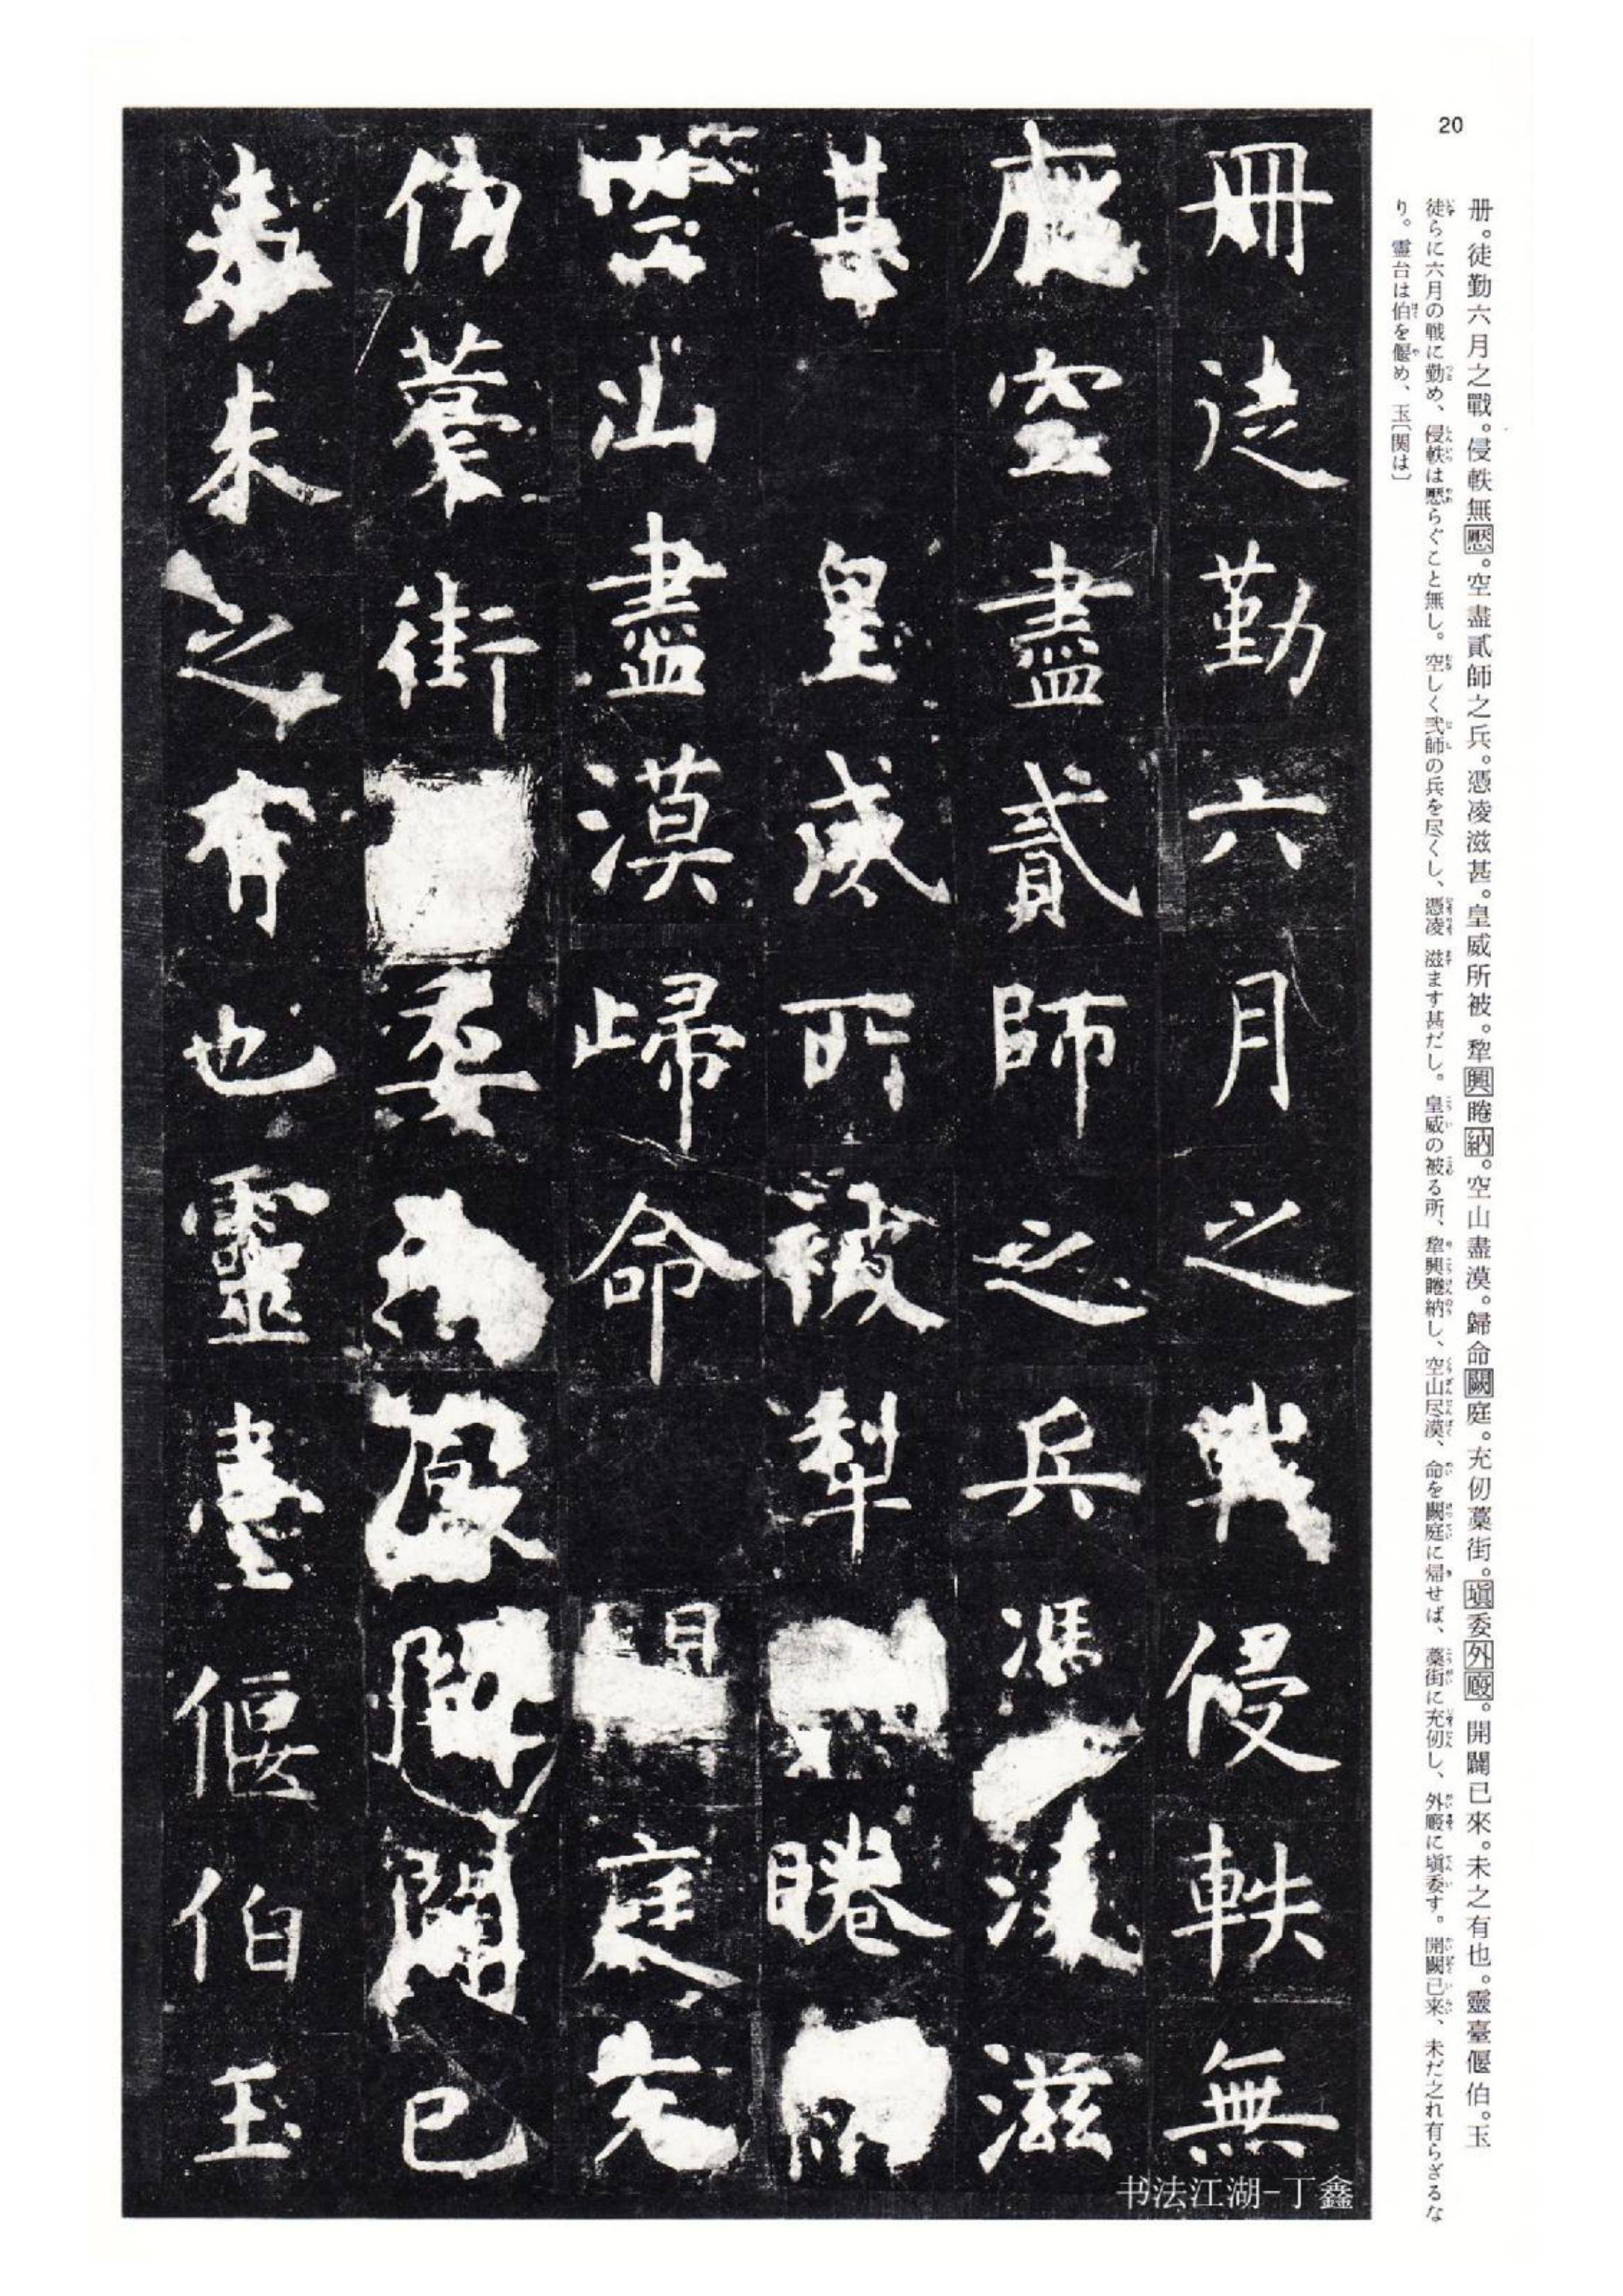 20
册。徒勤六月之戰。侵軼無懕。空盡貳師之兵。憑凌滋甚。皇威所被。犂興睠納。空山盡漠。歸命闕庭。充仞藁街。塡委外廏。開闢已來。未之有也。靈臺偃伯。玉
徒らに六月の戦に勤め、侵軼は懕らぐこと無し。空しく弐師の兵を尽くし、憑凌滋ます甚だし。皇威の被る所、犂興睠納し、空山尽漠、命を闕庭に帰せば、藁街に充仞し、外廏に塡委す。開闢已来、未だ之れ有らざるな
り。霊台は伯を偃め、玉〔関は〕
冊徒勤六月之戰侵軼無
空盡貳師之兵馮凌滋
甚皇威所被犂睠
空山盡漠歸命庭充
仞藁街委開闢已
來未之有也靈臺偃伯玉
书法江湖-丁鑫